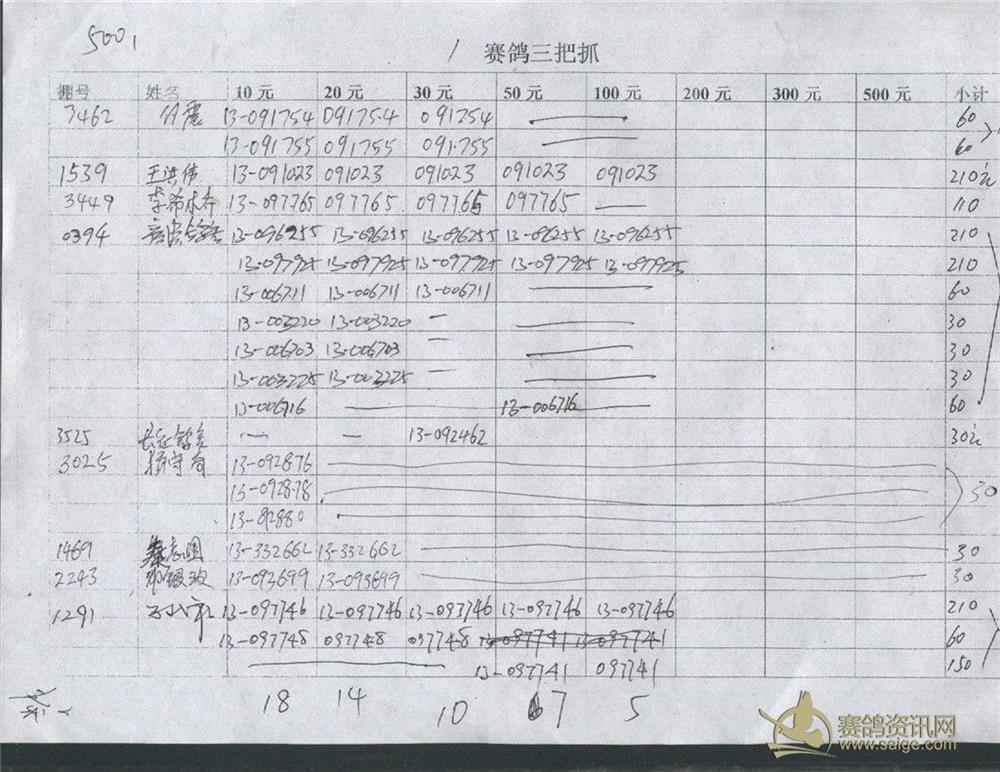 5001
1 赛鸽三把抓
棚号 姓名 10 元 20 元 30 元 50 元 100 元 200 元 300 元 500 元 小计
3462 13-091754 091754 091754 60
13-091755 091755 091755 60
1539 王洪伟 13-091023 091023 091023 091023 091023 210元
3449 13-097765 097765 097765 097765 110
0394 13-096255 13-096255 13-096255 13-096255 13-096255 210
13-097925 13-097925 13-097925 13-097925 13-097925 210
13-006711 13-006711 13-006711 60
13-003220 13-003220 30
13-006703 13-006703 30
13-003225 13-003225 30
13-006716 13-006716 60
3525 13-092462 30元
3025 杨守有 13-092876
13-092878 30
13-92880
1469 13-332662 13-332662 30
2243 邓银波 13-093699 13-093699 30
1291 13-097746 13-097746 13-097746 13-097746 13-097746 210
13-097748 097748 097748 13-097741 13-097741 60
13-097741 097741 150
18 14 10 7 5
赛鸽资讯网
www.saige.com